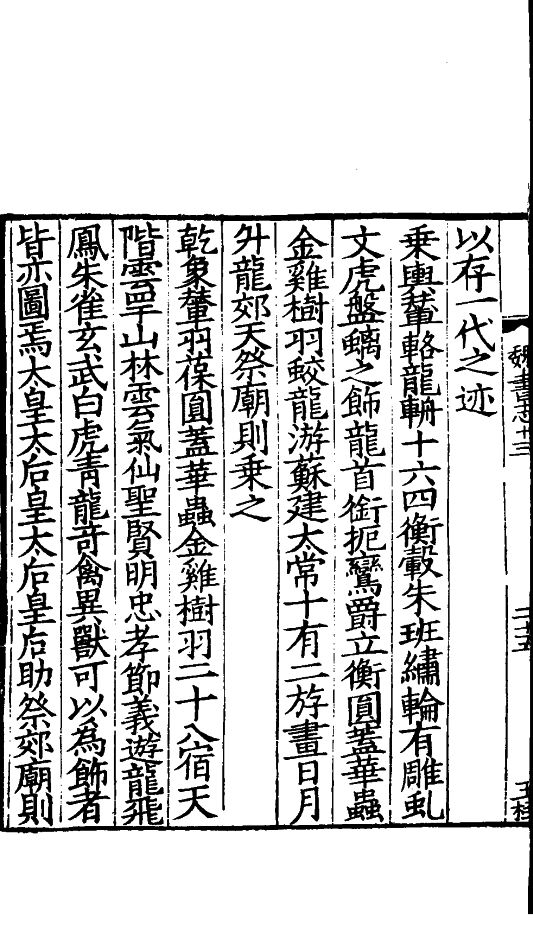 魏書志十三
二十五
王桂
以存一代之迹
乗輿輦輅龍輈十六四衡轂朱班繡輪有雕虬
文虎盤螭之飾龍首銜扼鸞爵立衡圓蓋華蟲
金雞樹羽蛟龍游蘇建太常十有二斿畫日月
升龍郊天祭廟則乗之
乾象輦羽葆圓蓋華蟲金雞樹羽二十八宿天
階雲罕山林雲氣仙聖賢明忠孝節義遊龍飛
鳳朱雀玄武白虎青龍竒禽異獸可以為飾者
皆亦圖焉太皇太后皇太后皇后助祭郊廟則